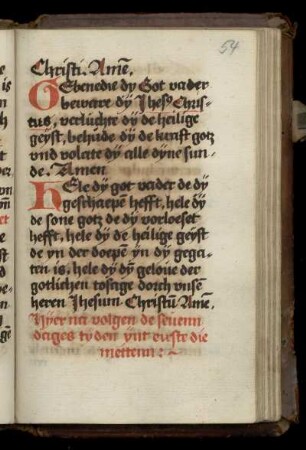 54
Christi. Amē.
Gebenedie dy Got vader
beware dÿ Jhesꝯ Chris-
tus, verluchte dÿ de heilige
geÿst, behude dÿ de kraft gotz
vnd volate dÿ alle dyne sun-
de. Amen
Hele dy got vader de dÿ
geschaepē hefft, hele dÿ
de sone gotz de dÿ vorloeset
hefft, hele dÿ de heilige geÿst
de yn der doepē ÿn dÿ gega-
ten is, hele dÿ dÿ geloue der
gotlichen doerch vnsē
heren Jhesum Christū Amē.
Hÿer na volgen de seuenn
daiges tÿden ÿnt eirste die
mettenn :~